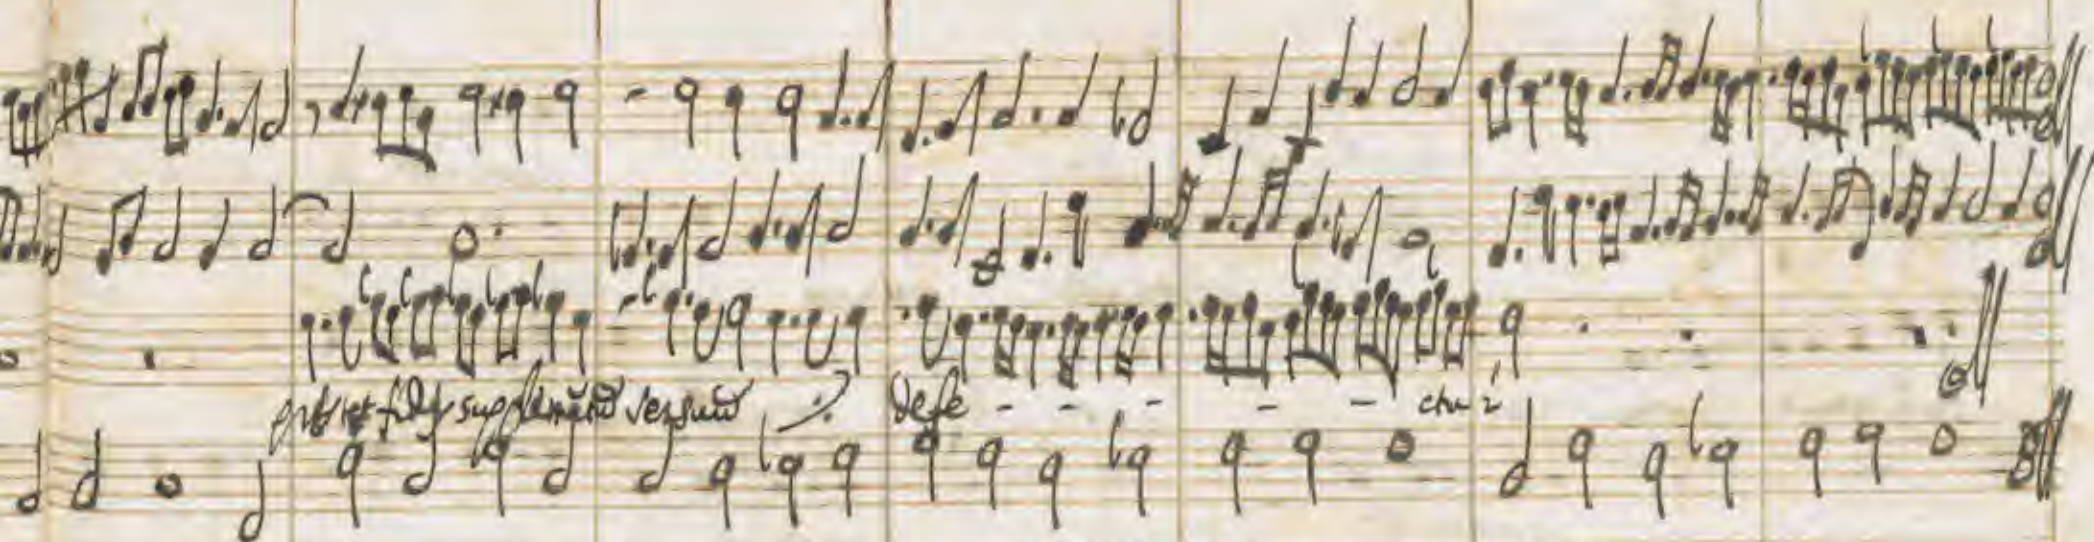 prestet fides supplementũ sensuũ ./. defe - - - - - ctu i